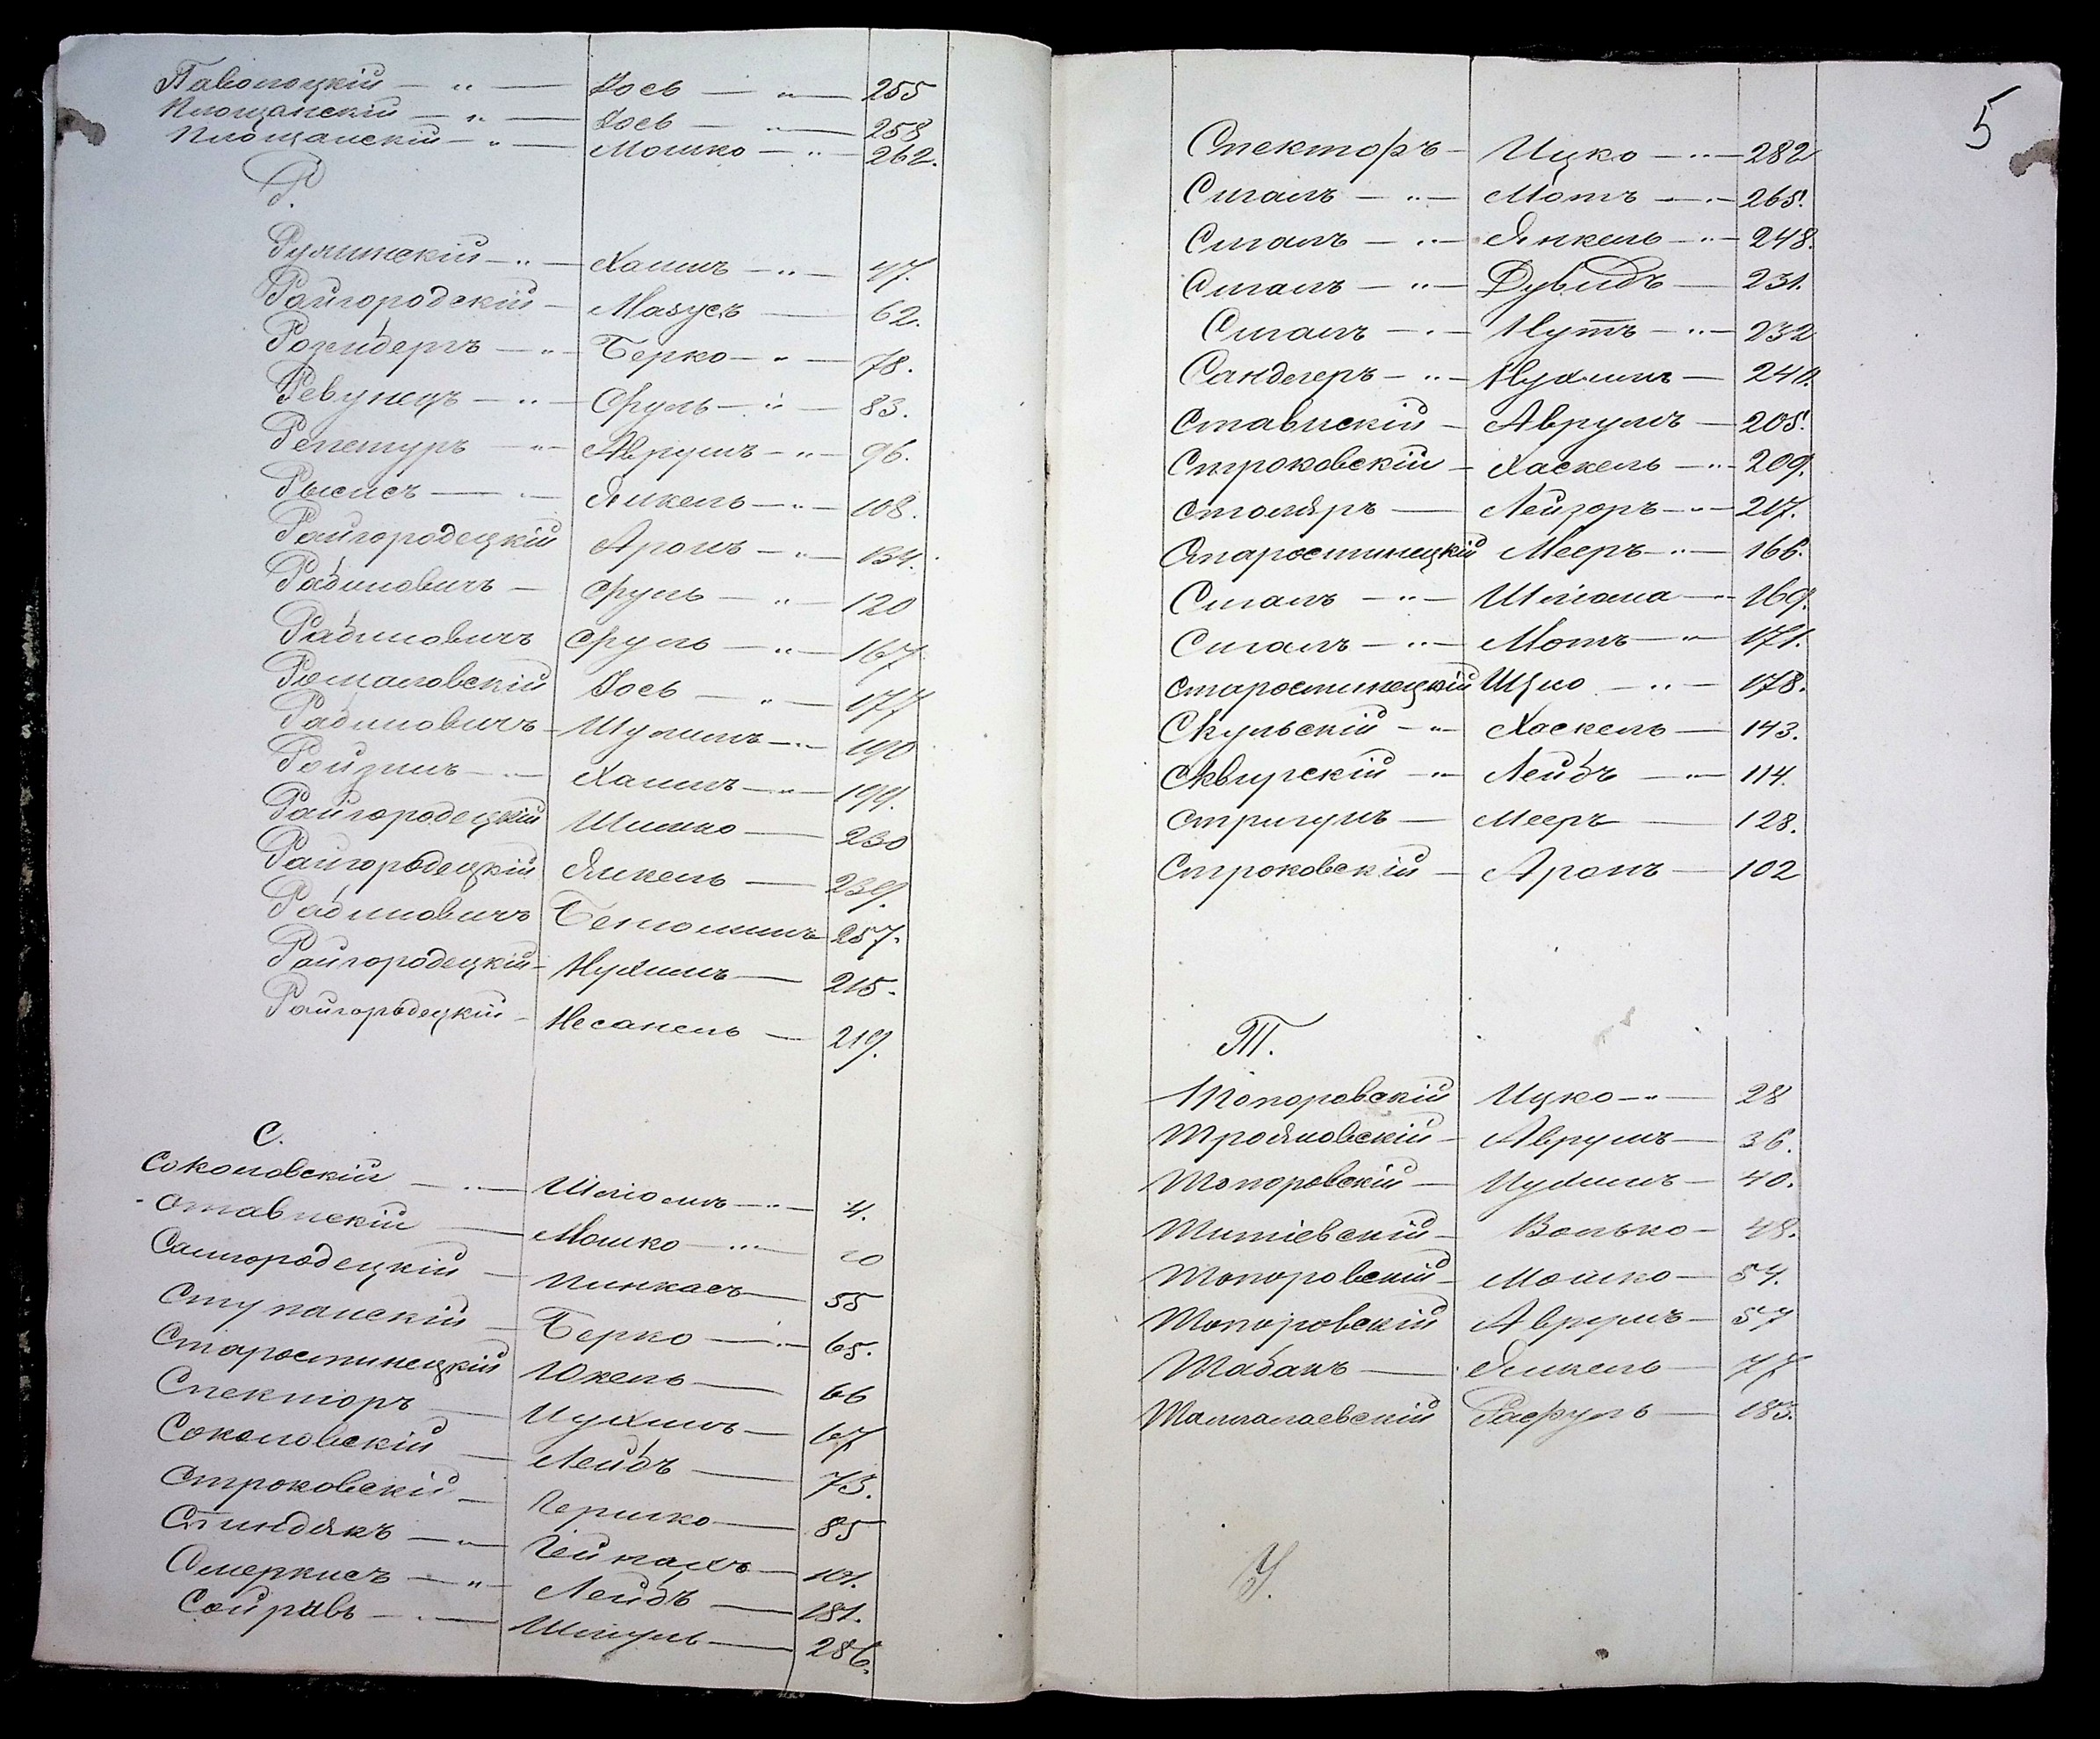 Паволоцкій — " — Іось — " — 255
Площанскій — " — Іось — " — 258
Площанскій — " — Мошко — " — 262.
Р.
Румынскій — " — Хаимъ — " — 47.
Райгородскій — Мазусъ — 62.
Розенбергъ — " — Берко — " — 78.
Ревунецъ — " — Сруль — " — 83.
Репетуръ — " — Аврумъ — " — 96.
Рысисъ — " — Янкель — " — 108.
Райгородецкій Аронъ — " — 134.
Рабиновичъ — Сруль — " — 120
Рабиновичъ Сруль — " — 167
Іось — " — 177
Рабиновичъ — Шулимъ — " — 190
Ройзинъ — " — Хаимъ — " — 199.
Райгородецкій Шимко — 230
Райгородецкій Янкель — 239.
Рабиновичъ Бенюминъ 257.
Райгородецкій — Нухимъ — 215.
Райгородецкій — Несанель — 219.
С.
Соколовскій — " — Шліомъ — " — 4.
Ставискій — Мошко — " — 20
Самгородецкій — Пинкасъ — 55
Ступанскій — Берко — " — 65.
Старостинецкій Юкель — 66
Спекторъ — Нухимъ — 67
Соколовскій — Лейбъ — 73.
Строковскій — Гершко — 85
Спиндякъ — " — 101.
Смеркисъ — " — Лейбъ — 181.
Шмуль — 286.
5
Спекторъ — Ицко — " — 282
Сигалъ — " — Мотъ — " — 265.
Сигалъ — " — Янкель — " — 248.
Сигалъ — " — Дувидъ — 231.
Сигалъ — " — Нутъ — " — 232
Сандлеръ — " — Нухимъ — 240.
Ставискій — Аврумъ — 205.
Строковскій — Хаскель — " — 209.
Столяръ — Лейзоръ — " — 217.
Старостинецкій Мееръ — " — 166.
Сигалъ — " — Шліома — " — 169.
Сигалъ — " — Мотъ — " — 171.
Старостинецкій Ицко — " — 178.
Скульскій — " — Хаскель — 143.
Сквирскій — " — Лейбъ — " — 114.
Стригунъ — Мееръ — 128.
Строковскій — Аронъ — 102
Т.
Топоровскій Ицко — " — 28
Трояновскій — Аврумъ — 36.
Топоровскій — Нухимъ — 40.
Титіевскій — Волько — 48.
Топоровскій — Мошко — 54.
Топоровскій Аврумъ — 57
Табакъ — Янкель — 77
Талалаевскій Расфуль — 183.
У.